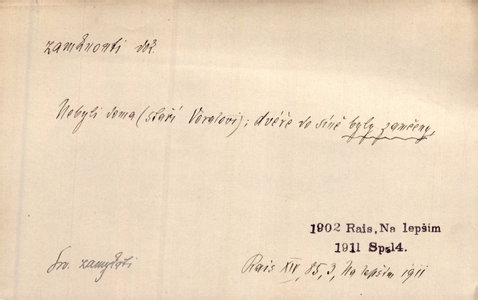 zamknouti dok.
Nebyli doma (staří Voralovi); dvéře do síně byly zamčeny.
1902 Rais, Na lepším
1911 Sp.14.
Sv. zamykati
Rais XIV, 85, 3, Na lepším 1911